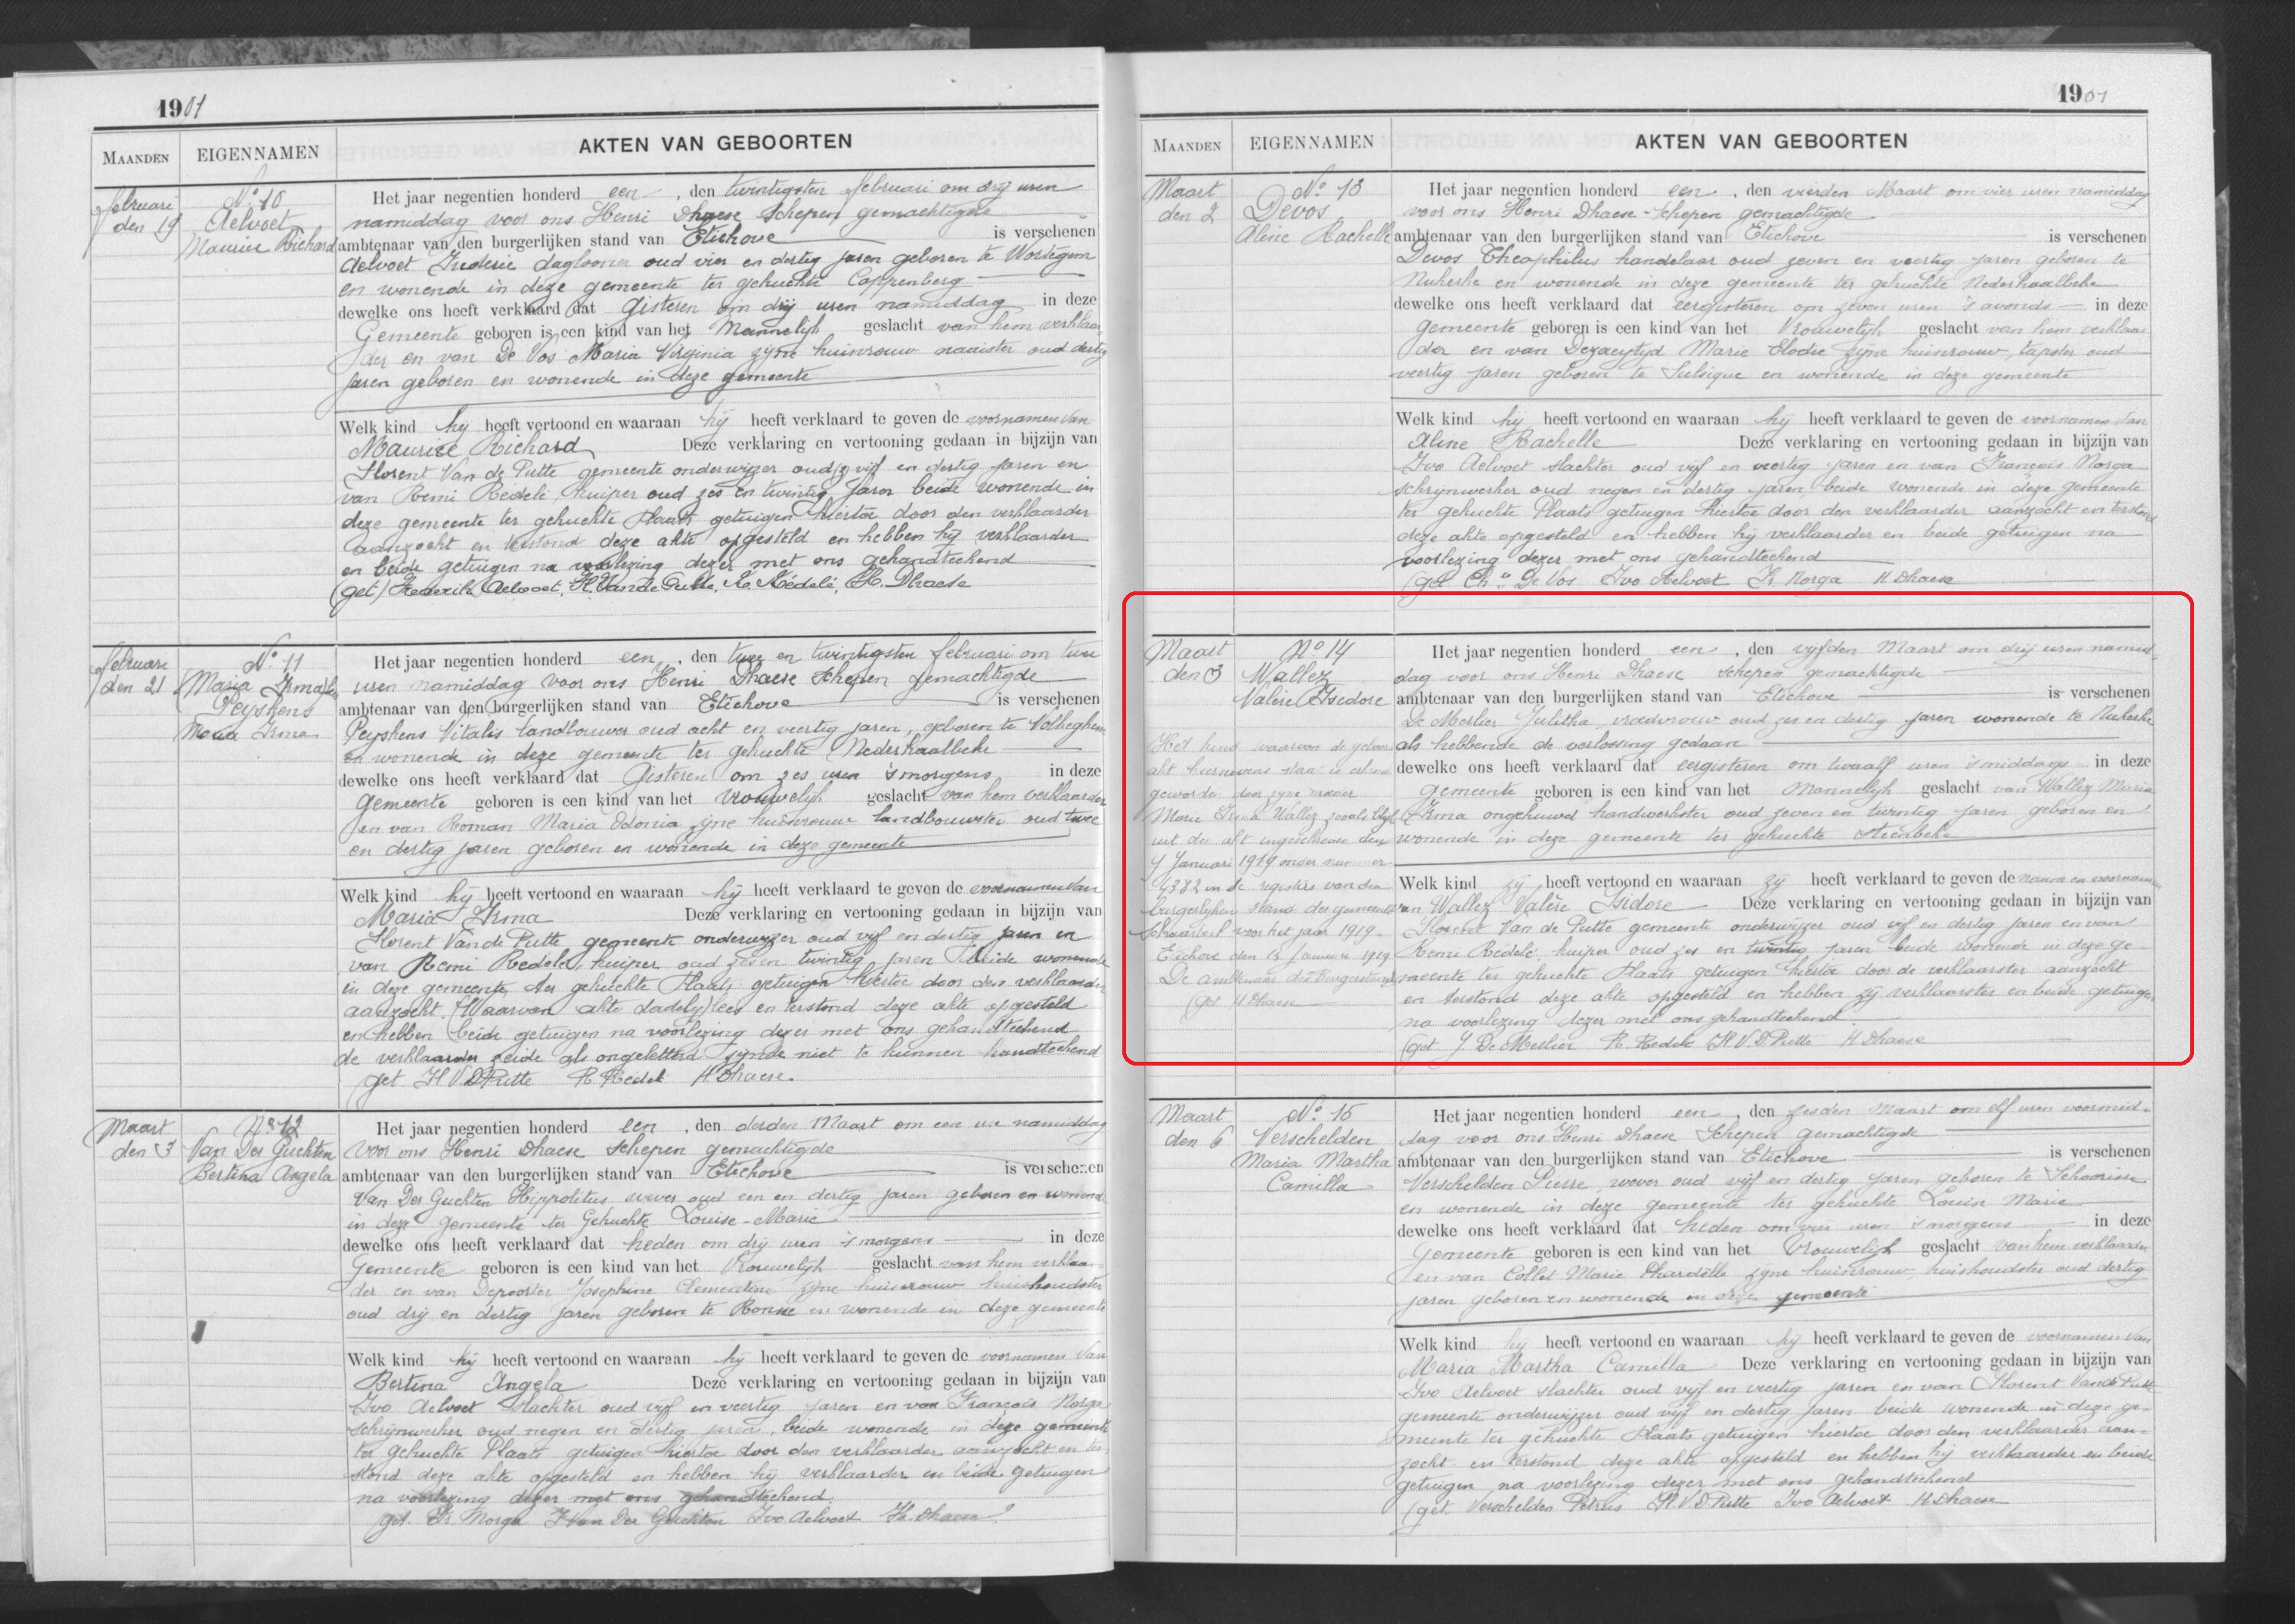 1901
MAANDEN
EIGENNAMEN
AKTEN VAN GEBOORTEN
februari
den 19
No 10
Aelvoet
Maurice Richard
Het jaar negentien honderd een, den twintigsten februari om drij uren
namiddag voor ons Henri Dhaese Schepen gemachtigde
ambtenaar van den burgerlijken stand van Etichove is verschenen
Aelvoet Frederic daglooner oud vier en dertig jaren geboren te Wortegem
en wonende in deze gemeente ter gehuchte Coppenberg
dewelke ons heeft verklaard dat gisteren om drij uren namiddag in deze
Gemeente geboren is een kind van het Mannelijk geslacht van hem verklaar
der en van De Vos Maria Virginia zijne huisvrouw naaister oud dertig
jaren geboren en wonende in deze gemeente
Welk kind hij heeft vertoond en waaraan hij heeft verklaard te geven de voornamen van
Maurice Richard Deze verklaring en vertooning gedaan in bijzijn van
Florent Van de Putte gemeente onderwijzer oud vijf en dertig jaren en
van Remi Redelé, kuiper oud zes en twintig jaren beide wonende in
deze gemeente ter gehuchte Plaats getuigen hiertoe door den verklaarder
aanzocht en terstond deze akte opgesteld en hebben hij verklaarder
en beide getuigen na voorlezing dezer met ons gehandteekend
(get) Frederik Aelvoet, Fl. Van de Putte, R. Rédelé, H. Dhaese
februari
den 21
No 11
Peyskens
Maria Irma
Het jaar negentien honderd een, den twee en twintigsten februari om twee
uren namiddag voor ons Henri Dhaese Schepen gemachtigde
ambtenaar van den burgerlijken stand van Etichove is verschenen
Peyskens Vitalis landbouwer oud acht en veertig jaren, geboren te Volkeghem
en wonende in deze gemeente ter gehuchte Nederhaalbeke
dewelke ons heeft verklaard dat Gisteren om zes uren 's morgens in deze
gemeente geboren is een kind van het vrouwelijk geslacht van hem verklaarder
en van Roman Maria Odonia zijne huisvrouw landbouwster oud twee
en dertig jaren geboren en wonende in deze gemeente
Welk kind hij heeft vertoond en waaraan hij heeft verklaard te geven de voornamen van
Maria Irma Deze verklaring en vertooning gedaan in bijzijn van
Florent Van de Putte gemeente onderwijzer oud vijf en dertig jaren en
van Remi Redelé, kuiper oud zes en twintig jaren beide wonende
in deze gemeente ter gehuchte Plaats getuigen hiertoe door den verklaarder
aanzocht. (Waarvan akte dadelijk lees en terstond deze akte opgesteld
en hebben beide getuigen na voorlezing dezer met ons gehandteekend
de verklaarder zeide als ongeletterd zijnde niet te kunnen handteekend
get. Fl V D Putte R Redelé H Dhaese.
Maart
den 3
No 12
Van Der Guchten
Bertina Angela
Het jaar negentien honderd een, den derden Maart om een ure namiddag
voor ons Henri Dhaese Schepen gemachtigde
ambtenaar van den burgerlijken stand van Etichove is verschenen
Van Der Guchten Hippolitus wever oud een en dertig jaren geboren en wonend
in deze gemeente ter Gehuchte Louise-Marie
dewelke ons heeft verklaard dat heden om drij uren 's morgens in deze
Gemeente geboren is een kind van het Vrouwelijk geslacht van hem verklaar
der en van Depoorter Josephine Clementine zijne huisvrouw huishoudster
oud drij en dertig jaren geboren te Ronse en wonende in deze gemeente
Welk kind hij heeft vertoond en waaraan hij heeft verklaard te geven de voornamen van
Bertina Angela Deze verklaring en vertooning gedaan in bijzijn van
Ivo Aelvoet slachter oud vijf en veertig jaren en van François Norga
schrijnwerker oud negen en dertig jaren, beide wonende in deze gemeente
ter gehuchte Plaats getuigen hiertoe door den verklaarder aanzocht en ter
stond deze akte opgesteld en hebben hij verklaarder en beide getuigen
na voorlezing dezer met ons gehandteekend.
get. Fr. Norga Van Der Guchten Ivo Aelvoet H. Dhaese
1901
MAANDEN
EIGENNAMEN
AKTEN VAN GEBOORTEN
Maart
den 2
No 13
Devos
Aline Rachelle
Het jaar negentien honderd een, den vierden Maart om vier uren namiddag
voor ons Henri Dhaese - Schepen gemachtigde
ambtenaar van den burgerlijken stand van Etichove is verschenen
Devos Theophilus handelaar oud zeven en veertig jaren geboren te
Nukerke en wonende in deze gemeente ter gehuchte Nederhaalbeke
dewelke ons heeft verklaard dat eergisteren om zeven uren 's avonds in deze
gemeente geboren is een kind van het Vrouwelijk geslacht van hem verklaar
der en van Dezaeytijd Marie Elodie zijne huisvrouw, tapster oud
veertig jaren geboren te Sulsique en wonende in deze gemeente
Welk kind hij heeft vertoond en waaraan hij heeft verklaard te geven de voornamen van
Aline Rachelle Deze verklaring en vertooning gedaan in bijzijn van
Ivo Aelvoet slachter oud vijf en veertig jaren en van François Norga
schrijnwerker oud negen en dertig jaren, beide wonende in deze gemeente
ter gehuchte Plaats getuigen hiertoe door den verklaarder aanzocht en terstond
deze akte opgesteld en hebben hij verklaarder en beide getuigen na
voorlezing dezer met ons gehandteekend
(get Ch. De Vos Ivo Aelvoet Fr. Norga H Dhaese
Maart
den 3
No 14
Wallez
Valère Isedore
Het kind waarvan de geboorte
akt hiernevens staat is erkend
geworden door zijne moeder
Marie Irma Wallez zooals blijkt
uit den akt ingeschreven den
4 Januari 1919 onder nummer
4382 in de registers van den
burgerlijken stand der gemeente
Schaarbeek voor het jaar 1919.
Etichove den 13 Januari 1919
De ambtenaar des burgerstand
(get H Dhaese
Het jaar negentien honderd een, den vijfden Maart om drij uren namid-
dag voor ons Henri Dhaese Schepen gemachtigde
ambtenaar van den burgerlijken stand van Etichove is verschenen
De Merlier Julitha, vroedvrouw oud zes en dertig jaren wonende te Nukerke
als hebbende de verlossing gedaan
dewelke ons heeft verklaard dat eergisteren om twaalf uren 's middags in deze
gemeente geboren is een kind van het Mannelijk geslacht van Wallez Maria
Irma ongehuwd handwerkster oud zeven en twintig jaren geboren en
wonende in deze gemeente ter gehuchte Steenbeke
Welk kind zij heeft vertoond en waaraan zij heeft verklaard te geven de naam en voornamen
van Wallez Valère Isidore Deze verklaring en vertooning gedaan in bijzijn van
Florent Van de Putte gemeente onderwijzer oud vijf en dertig jaren en van
Remi Redelé, kuiper oud zes en twintig jaren beide wonende in deze ge-
meente ter gehuchte Plaats getuigen hiertoe door de verklaarster aanzocht
en terstond deze akte opgesteld en hebben zij verklaarster en beide getuigen
na voorlezing dezer met ons gehandteekend.
(get J De Merlier R. Redelé Fl V D Putte H Dhaese
Maart
den 6
No 15
Verschelden
Maria Martha
Camilla
Het jaar negentien honderd een, den zesden Maart om elf uren voormid-
dag voor ons Henri Dhaese Schepen gemachtigde
ambtenaar van den burgerlijken stand van Etichove is verschenen
Verschelden Pierre, wever oud vijf en dertig jaren geboren te Schoorisse
en wonende in deze gemeente ter gehuchte Louise Marie
dewelke ons heeft verklaard dat heden om vier uren 's morgens in deze
Gemeente geboren is een kind van het Vrouwelijk geslacht van hem verklaarder
en van Collet Marie Pharaïlde zijne huisvrouw, huishoudster oud dertig
jaren geboren en wonende in deze gemeente
Welk kind hij heeft vertoond en waaraan hij heeft verklaard te geven de voornamen van
Maria Martha Camilla Deze verklaring en vertooning gedaan in bijzijn van
Ivo Aelvoet slachter oud vijf en veertig jaren en van Florent Van de Putte
gemeente onderwijzer oud vijf en dertig jaren beide wonende in deze ge-
meente ter gehuchte Plaats getuigen hiertoe door den verklaarder aan-
zocht en terstond deze akte opgesteld en hebben hij verklaarder en beide
getuigen na voorlezing dezer met ons gehandteekend
(get. Verschelden Petrus Fl. V D Putte Ivo Aelvoet H Dhaese